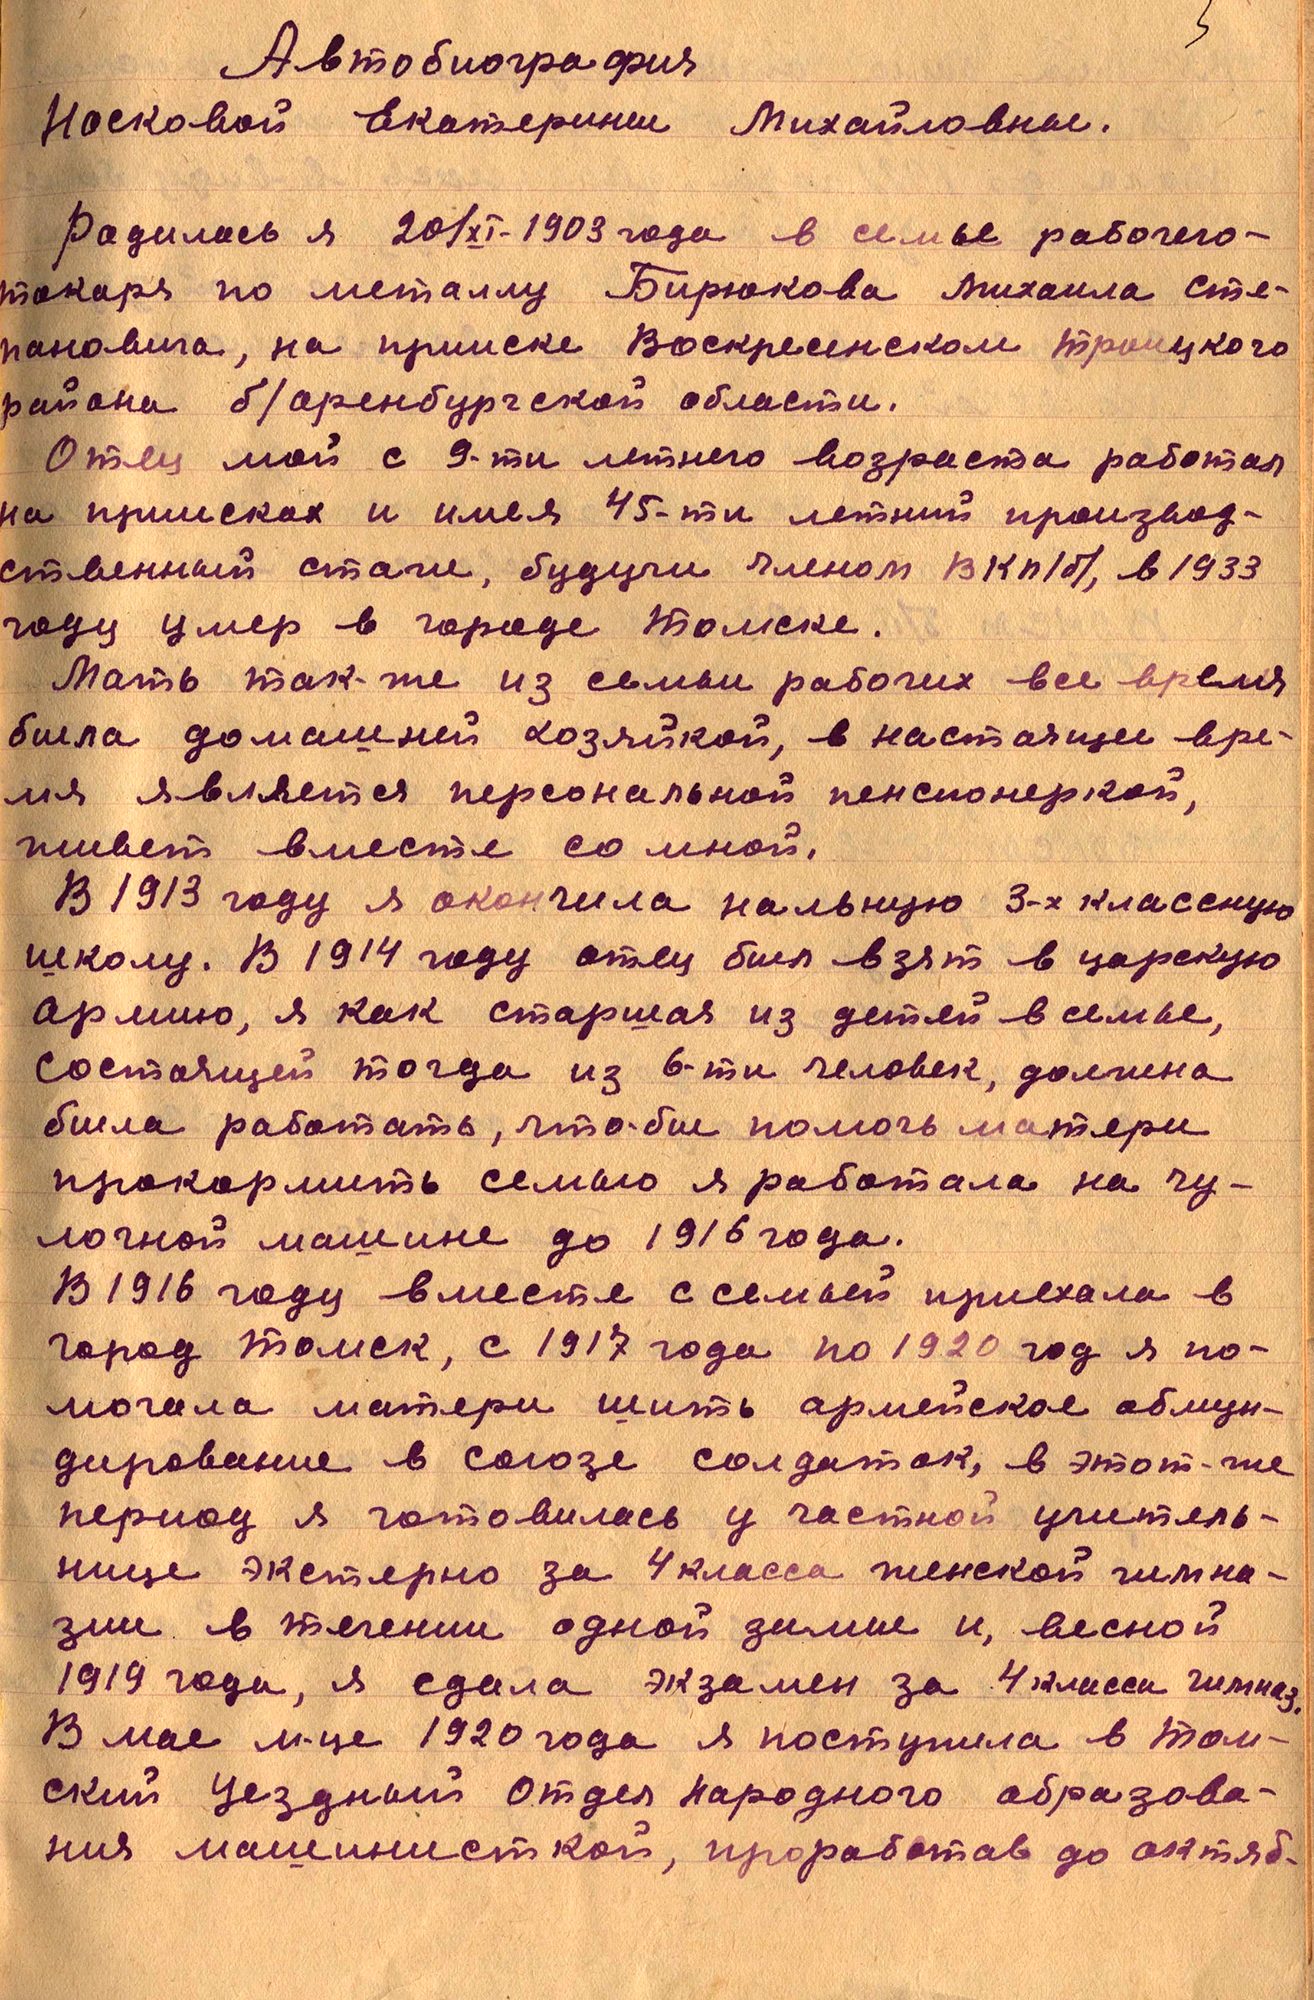 Автобиография
Носковой Екатерины Михайловны.
Радилась я 20/XI-1903 года в семье рабочего-
токаря по металлу Бирюкова Михаила Сте-
пановича, на прииске Воскресенском Троицкого
района б/Оренбургской области.
Отец мой с 9-ти летнего возраста работал
на приисках и имея 45-ти летний производ-
ственный стаж, будучи членом ВКП/б/, в 1933
году умер в городе Томске.
Мать так-же из семьи рабочих все время
была домашней хозяйкой, в настоящее вре-
мя является персональной пенсионеркой,
живет вместе со мной.
В 1913 году я окончила начальную 3-х классную
школу. В 1914 году отец был взят в царскую
армию, я как старшая из детей в семье,
состоящей тогда из 6-ти человек, должна
была работать, что-бы помочь матери
прокормить семью я работала на чу-
лочной машине до 1916 года.
В 1916 году вместе с семьей приехала в
город Томск, с 1917 года по 1920 год я по-
могала матери шить армейское обмун-
дирование в союзе солдаток, в этот-же
период я готовилась у частной учитель-
нице экстерно за 4 класса женской гимна-
зии в течении одной зимы и, весной
1919 года, я сдала экзамен за 4 класса гимназ.
В мае м-це 1920 года я поступила в Том-
ский Уездный Отдел Народного образова-
ния машинисткой, проработав до октяб-